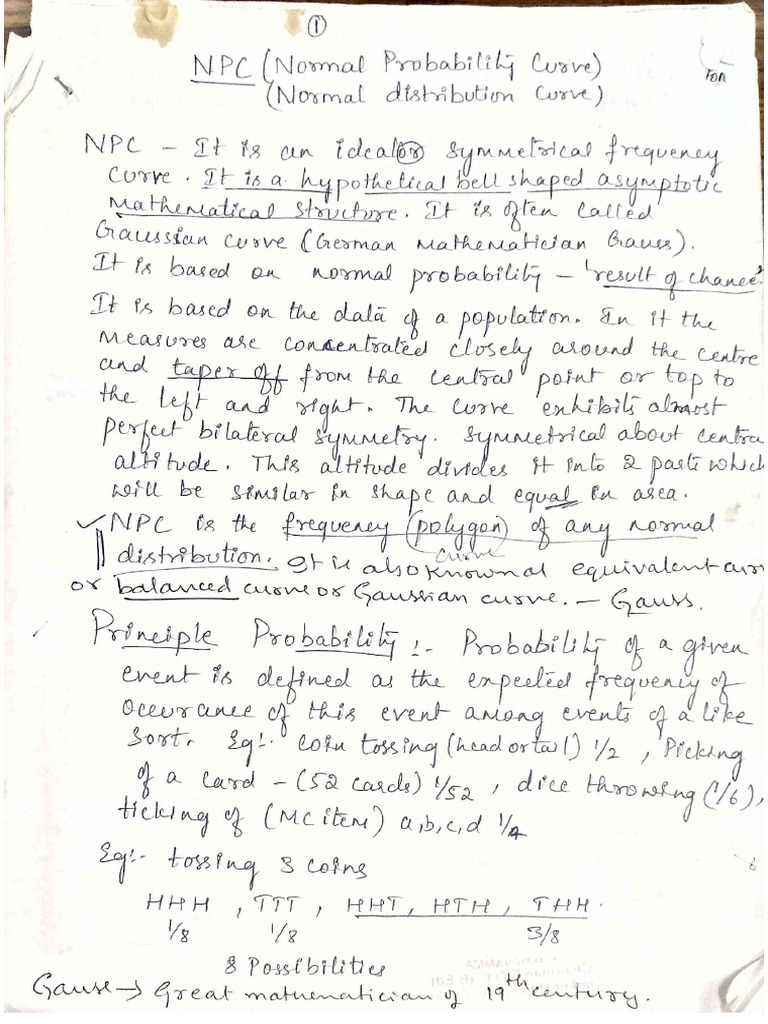 1
NPC (Normal Probability Curve)
(Normal distribution Curve)
FOR
NPC - It is an ideal or symmetrical frequency
curve. It is a hypothetical bell shaped asymptotic
Mathematical structure. It is often called
Gaussian curve (German Mathematician Gauss).
It is based on normal probability - 'result of chance'.
It is based on the data of a population. In it the
measures are concentrated closely around the centre
and taper off from the central point or top to
the left and right. The curve exhibits almost
perfect bilateral symmetry. Symmetrical about centra
altitude. This altitude divides it into 2 parts which
will be similar in shape and equal in area.
✓ NPC is the frequency (polygon) of any normal
curve
distribution. It is also known as equivalent curv
or balanced curve or Gaussian curve. - Gauss.
Principle Probability :- Probability of a given
event is defined as the expected frequency of
occurance of this event among events of a like
sort. Eg:- coin tossing (head or tail) 1/2, Picking
of a card - (52 cards) 1/52, dice throwing (1/6),
ticking of (MC item) a,b,c,d 1/4
Eg:- tossing 3 coins
HHH, TTT, HHT, HTH, THH.
1/8 1/8 3/8
8 Possibilities
Gause → Great mathematician of 19th century.